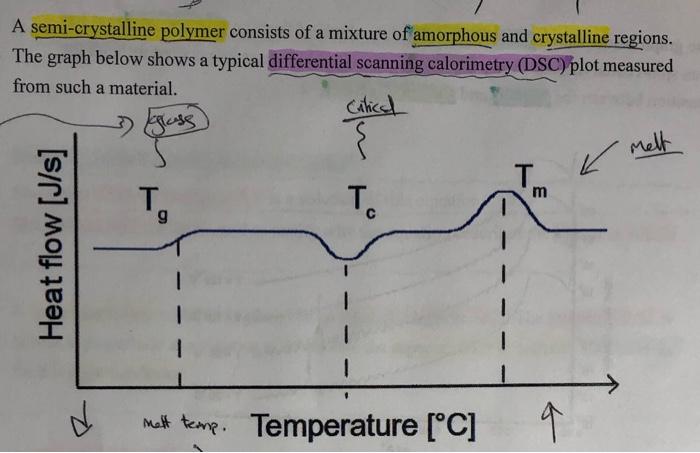 A semi-crystalline polymer consists of a mixture of amorphous and crystalline regions.
The graph below shows a typical differential scanning calorimetry (DSC) plot measured
from such a material.
glass
Critical
Melt
Tg
Tc
Tm
Heat flow [J/s]
Melt temp.
Temperature [°C]